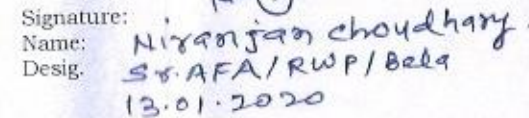 Signature:
Name: Niranjan choudhary
Desig. Sr. AFA/RWP/Bela
13.01.2020